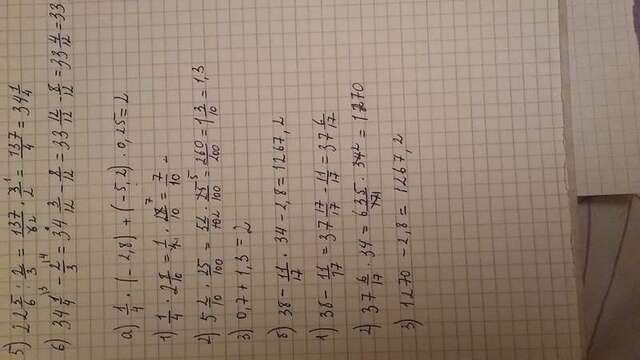 5) 22 5/6 : 2/3 = 137/62 · 3¹/2 = 137/4 = 34 1/4
6) 34 1/4 ^13 - 2/3 ^14 = 34 3/12 - 8/12 = 33 12/12 - 8/12 = 33 4/12 = 33
а) 1/4 · (- 2,8) + (-5,2) · 0,25 = 2
1) 1/4 · 2 8/10 = 1/4 · 28⁷/10 = 7/10 -
2) 5 2/10 · 25/100 = 52/102 · 25⁵/100 = 260/200 = 1 3/10 = 1,3
3) 0,7 + 1,3 = 2
б) 38 - 11/17 · 34 - 2,8 = 1267,2
1) 38 - 11/17 = 37 17/17 - 11/17 = 37 6/17
2) 37 6/17 · 34 = 635/171 · 34² = 1270
3) 1270 - 2,8 = 1267,2